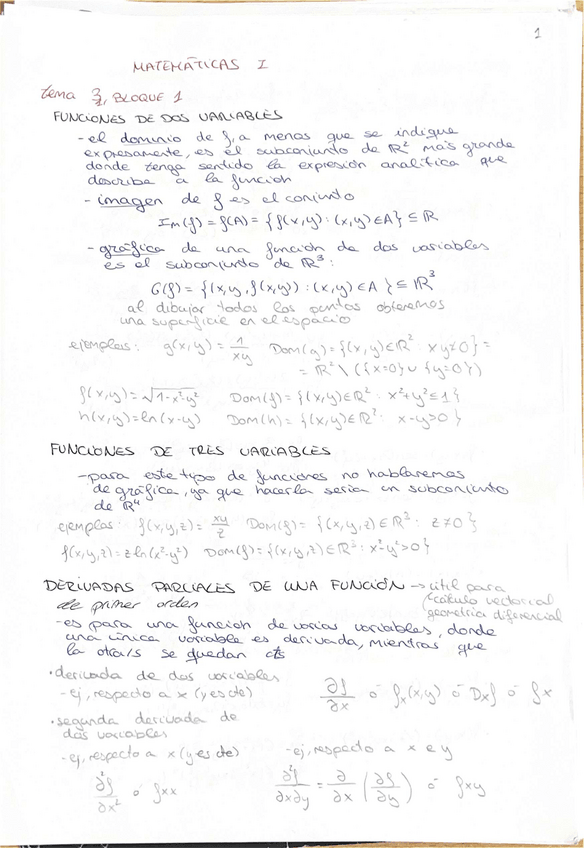 1
MATEMÁTICAS I
tema 3/1, BLOQUE 1
FUNCIONES DE DOS VARIABLES
- el dominio de f, a menos que se indique
expresamente, es el subconjunto de ℝ² más grande
donde tenga sentido la expresión analítica que
describe a la función
- imagen de f es el conjunto
Im(f) = f(A) = {f(x,y) : (x,y) ∈ A} ⊆ ℝ
- gráfica de una función de dos variables
es el subconjunto de ℝ³:
G(f) = {(x,y,f(x,y)) : (x,y) ∈ A} ⊆ ℝ³
al dibujar todos los puntos obtenemos
una superficie en el espacio
ejemplos: g(x,y) = 1/xy Dom(g) = {(x,y) ∈ ℝ² : xy ≠ 0} =
= ℝ² \ ({x=0} ∪ {y=0})
f(x,y) = √1-x²-y² Dom(f) = {(x,y) ∈ ℝ² : x²+y² ≤ 1}
h(x,y) = ln(x-y) Dom(h) = {(x,y) ∈ ℝ² : x-y>0}
FUNCIONES DE TRES VARIABLES
- para este tipo de funciones no hablaremos
de gráfica, ya que hacerla sería un subconjunto
de ℝ⁴
ejemplos: f(x,y,z) = xy/z Dom(f) = {(x,y,z) ∈ ℝ³ : z ≠ 0}
f(x,y,z) = z ln(x²-y²) Dom(f) = {(x,y,z) ∈ ℝ³ : x²-y²>0}
DERIVADAS PARCIALES DE UNA FUNCIÓN → útil para
de primer orden
cálculo vectorial
geometría diferencial
- es para una función de varias variables, donde
una única variable es derivada, mientras que
la otra/s se quedan cts
· derivada de dos variables
- ej, respecto a x (y es cte)
∂f/∂x ó fx(x,y) ó Dxf ó fx
· segunda derivada de
dos variables
- ej, respecto a x (y es cte)
∂²f/∂x² ó fxx
- ej, respecto a x e y
∂²f/∂x∂y = ∂/∂x (∂f/∂y) ó fxy